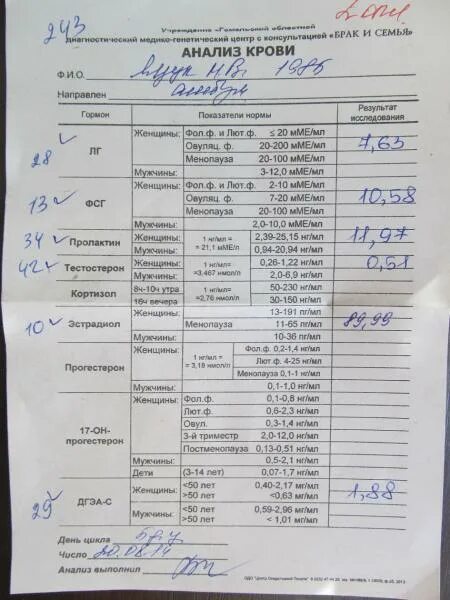 243 2 экз.
Учреждение «Гомельский областной
диагностический медико-генетический центр с консультацией «БРАК И СЕМЬЯ»
АНАЛИЗ КРОВИ
Ф.И.О. Н.В. 1986
Направлен
Гормон Показатели нормы Результат исследования
28 ЛГ Женщины: Фол.ф. и Лют.ф. ≤ 20 мМЕ/мл 7,63
Овуляц. ф. 20-200 мМЕ/мл
Менопауза 20-100 мМЕ/мл
Мужчины: 3-12,0 мМЕ/мл
13 ФСГ Женщины: Фол.ф. и Лют.ф. 2-10 мМЕ/мл 10,58
Овуляц. ф. 7-20 мМЕ/мл
Менопауза 20-100 мМЕ/мл
Мужчины: 2,0-10,0 мМЕ/мл
34 Пролактин Женщины: 1 нг/мл = = 21,1 мМЕ/л 2,39-25,15 нг/мл 11,97
Мужчины: 0,94-20,94 нг/мл
42 Тестостерон Женщины: 1 нг/мл= =3,467 нмол/л 0,26-1,22 нг/мл 0,51
Мужчины: 2,0-6,9 нг/мл
Кортизол 8ч-10ч утра 1 нг/мл= =2,76 нмол/л 50-230 нг/мл
16ч вечера 30-150 нг/мл
10 Эстрадиол Женщины: 13-191 пг/мл 89,99
Менопауза 11-65 пг/мл
Мужчины: 10-36 пг/мл
Прогестерон Женщины: 1 нг/мл= = 3,18 нмол/мл Фол.ф. 0,2-1,4 нг/мл
Лют.ф. 4-25 нг/мл
Менопауза 0,1-1 нг/мл
Мужчины: 0,1-1,0 нг/мл
17-ОН-прогестерон Женщины: Фол.ф. 0,1-0,8 нг/мл
Лют.ф. 0,6-2,3 нг/мл
Овул. 0,3-1,4 нг/мл
3-й триместр 2,0-12,0 нг/мл
Постменопауза 0,13-0,51 нг/мл
Мужчины: 0,5-2,1 нг/мл
Дети (3-14 лет) 0,07-1,7 нг/мл
29 ДГЭА-С Женщины: <50 лет 0,40-2,17 мкг/мл 1,88
>50 лет <0,63 мкг/мл
Мужчины: <50 лет 0,59-2,96 мкг/мл
>50 лет < 1,01 мкг/мл
День цикла 5 д.ц.
Число 20.08.14
Анализ выполнил